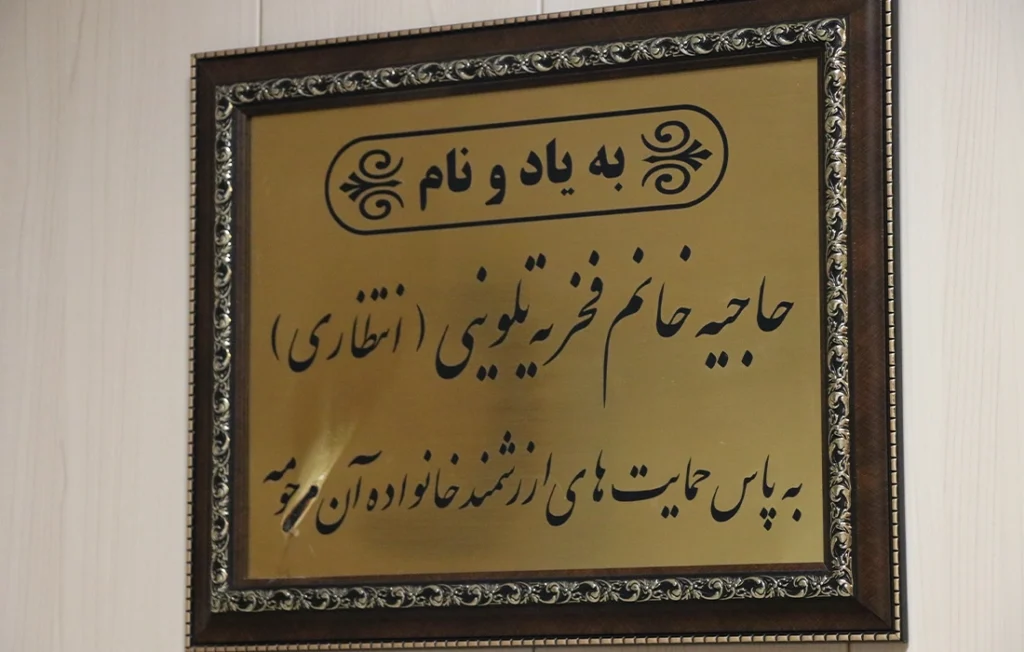 به یاد و نام
حاجیه خانم فخریه تلوینی (انتظاری)
به پاس حمایت های ارزشمند خانواده آن مرحومه